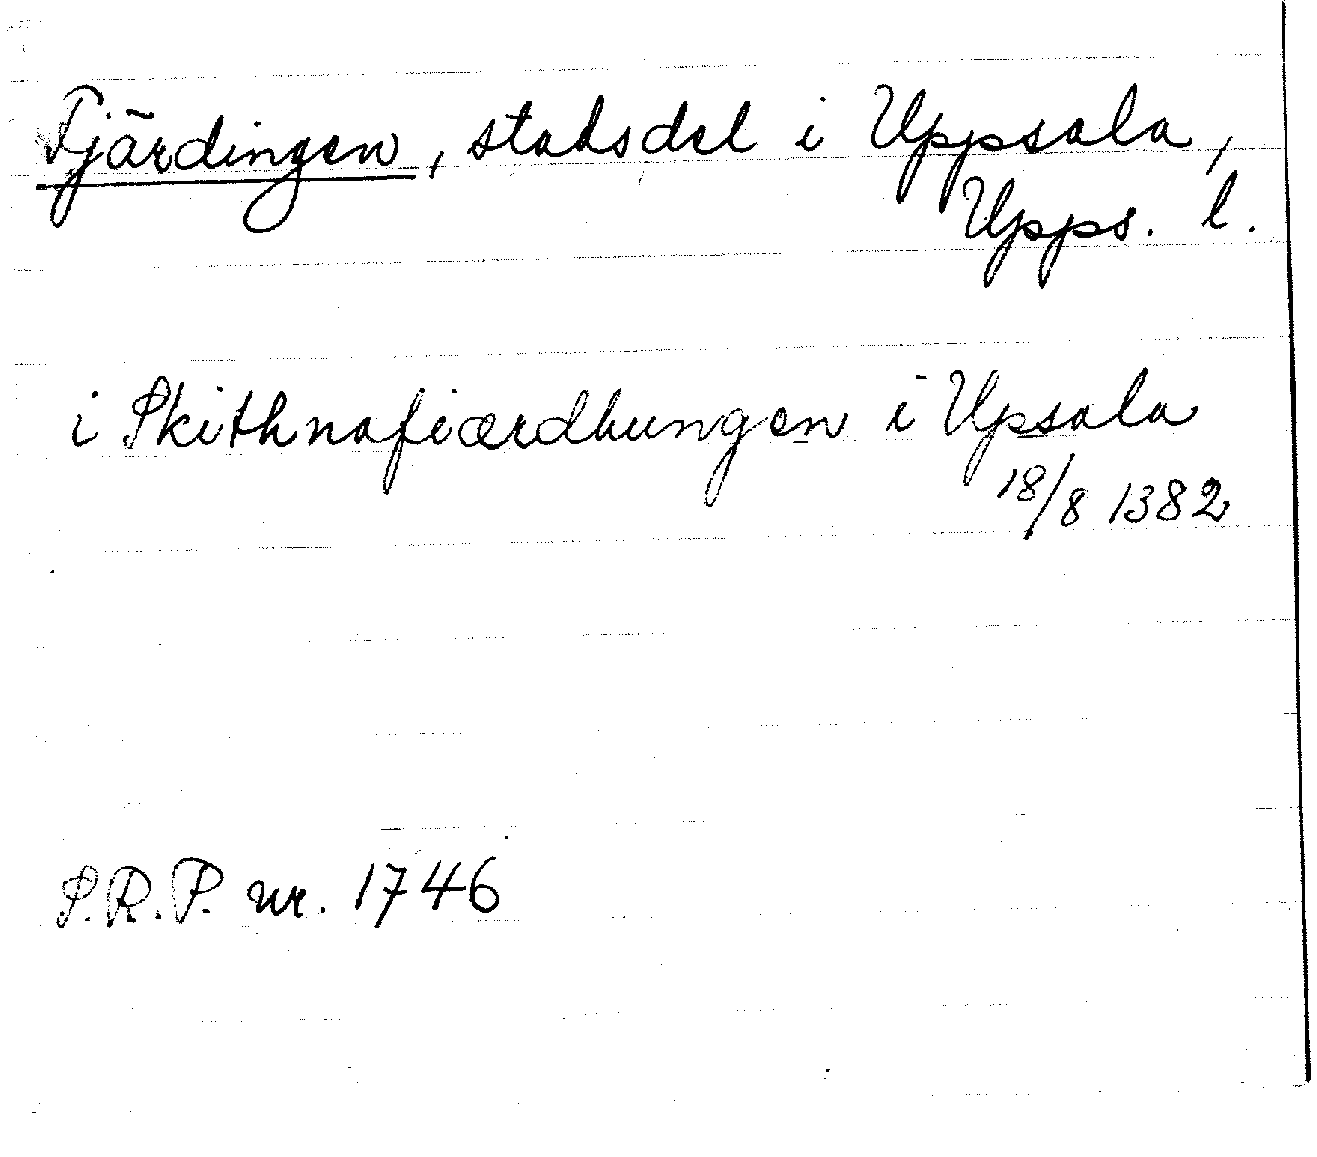 Fjärdingen, stadsdel i Uppsala,
Upps. l.
i Skithnafiærdhungen i Upsala
18/8 1382
S.R.P. nr. 1746